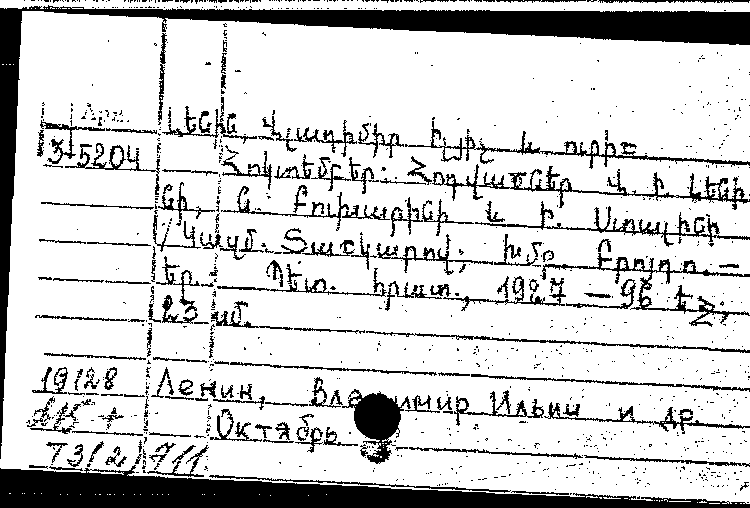 Арм. Լենին, Վլադիմիր Իլյիչ և ուրիշ.
3-5204 Հոկտեմբեր: Հոդվածներ Վ. Ի. Լենի-
նի, Ն. Բուխարինի և Ի. Ստալինի
/Կազմ. Տաշկարով; խմբ. Բրոյդո. –
Եր.: Պետ. հրատ., 1927 – 96 էջ;
23 սմ.
19128 Ленин, Владимир Ильич и др.
d15 + Октябрь
T3(2) 711